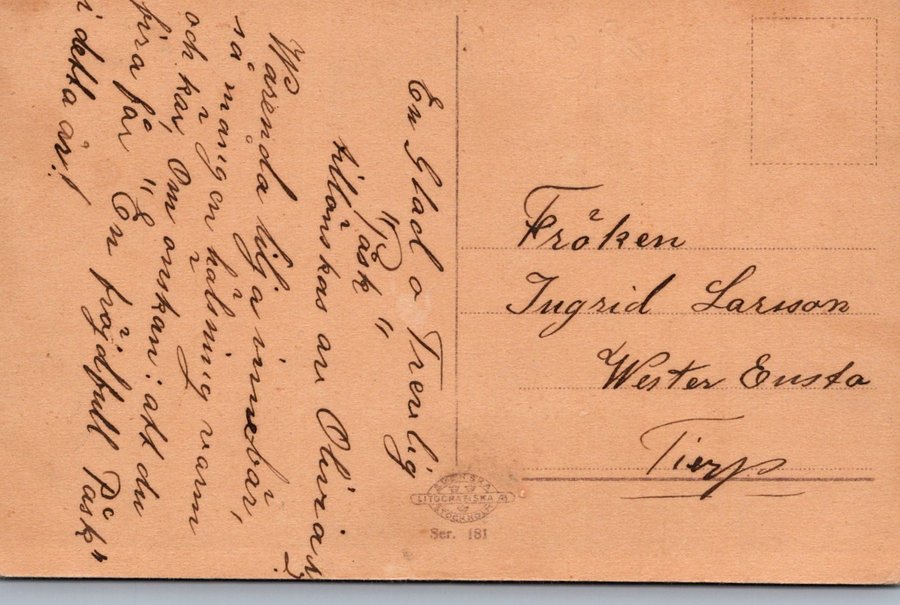 En Glad o Trevlig
"Påsk"
tillönskas av Olivia L
Varenda lilja innebär,
så mången hälsning varm
och kär, Om önskan: att du
fira får "En fröjdfull Påsk"
i detta år!
Fröken
Ingrid Larsson
Wester Ensta
Tierp
SVENSKA
LITOGRAFISKA AB
STOCKHOLM
Ser. 181